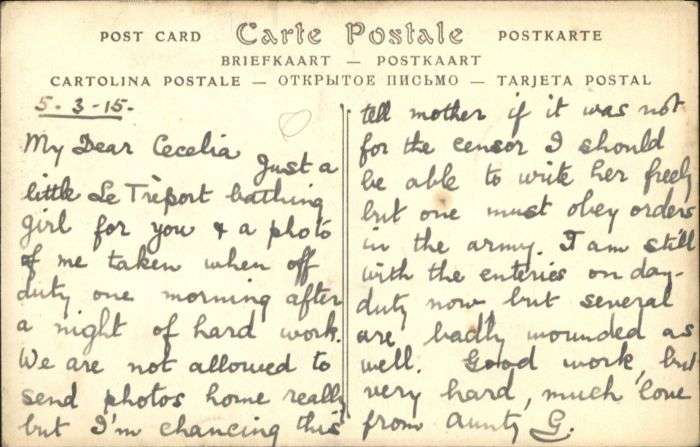 POST CARD Carte Postale POSTKARTE
BRIEFKAART — POSTKAART
CARTOLINA POSTALE — ОТКРЫТОЕ ПИСЬМО — TARJETA POSTAL
5-3-15-
My Dear Cecelia Just a
little Le Trèport bathing
girl for you & a photo
of me taken when off
duty one morning after
a night of hard work.
We are not allowed to
send photos home really
but I'm chancing this
tell mother if it was not
for the censor I should
be able to write her freely
but one must obey orders
in the army. I am still
with the enteries on day-
duty now, but several
are badly wounded as
well. Good work, but
very hard, much love
from Aunty G.